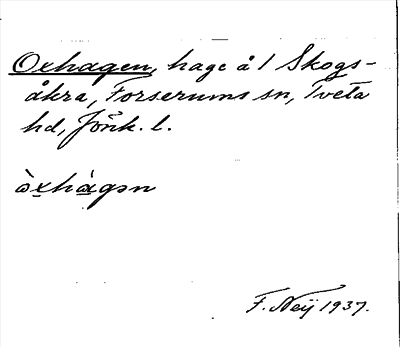 Oxhagen, hage å 1 Skogs-
åkra, Forserums sn, Tveta
hd, Jönk. l.
òxhàgən
F. Neij 1937.